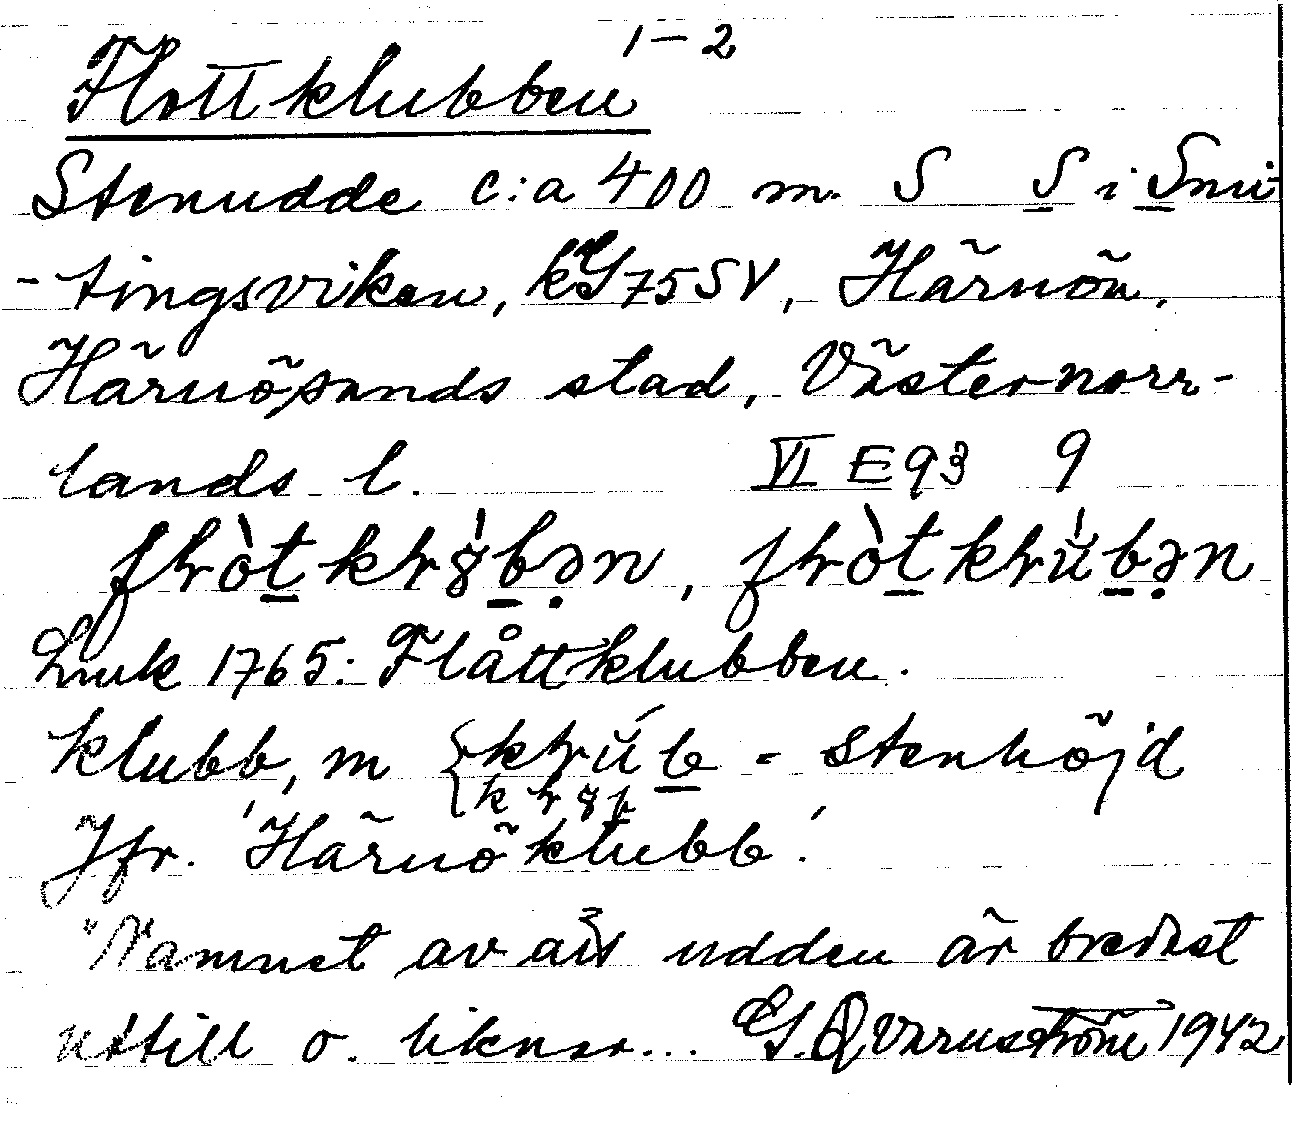 Flottklubben 1-2
Stenudde c:a 400 m. S S i Smi
-tingsviken, kG75SV, Härnön,
Härnösands stad, Västernorr-
lands l. VI E93 9
Lmk 1765: Flåttklubben.
klubb, m = stenhöjd
Jfr. 'Härnöklubb'.
"Namnet av att udden är bredast
uttill o. liknar... G. Qvarnström 1942